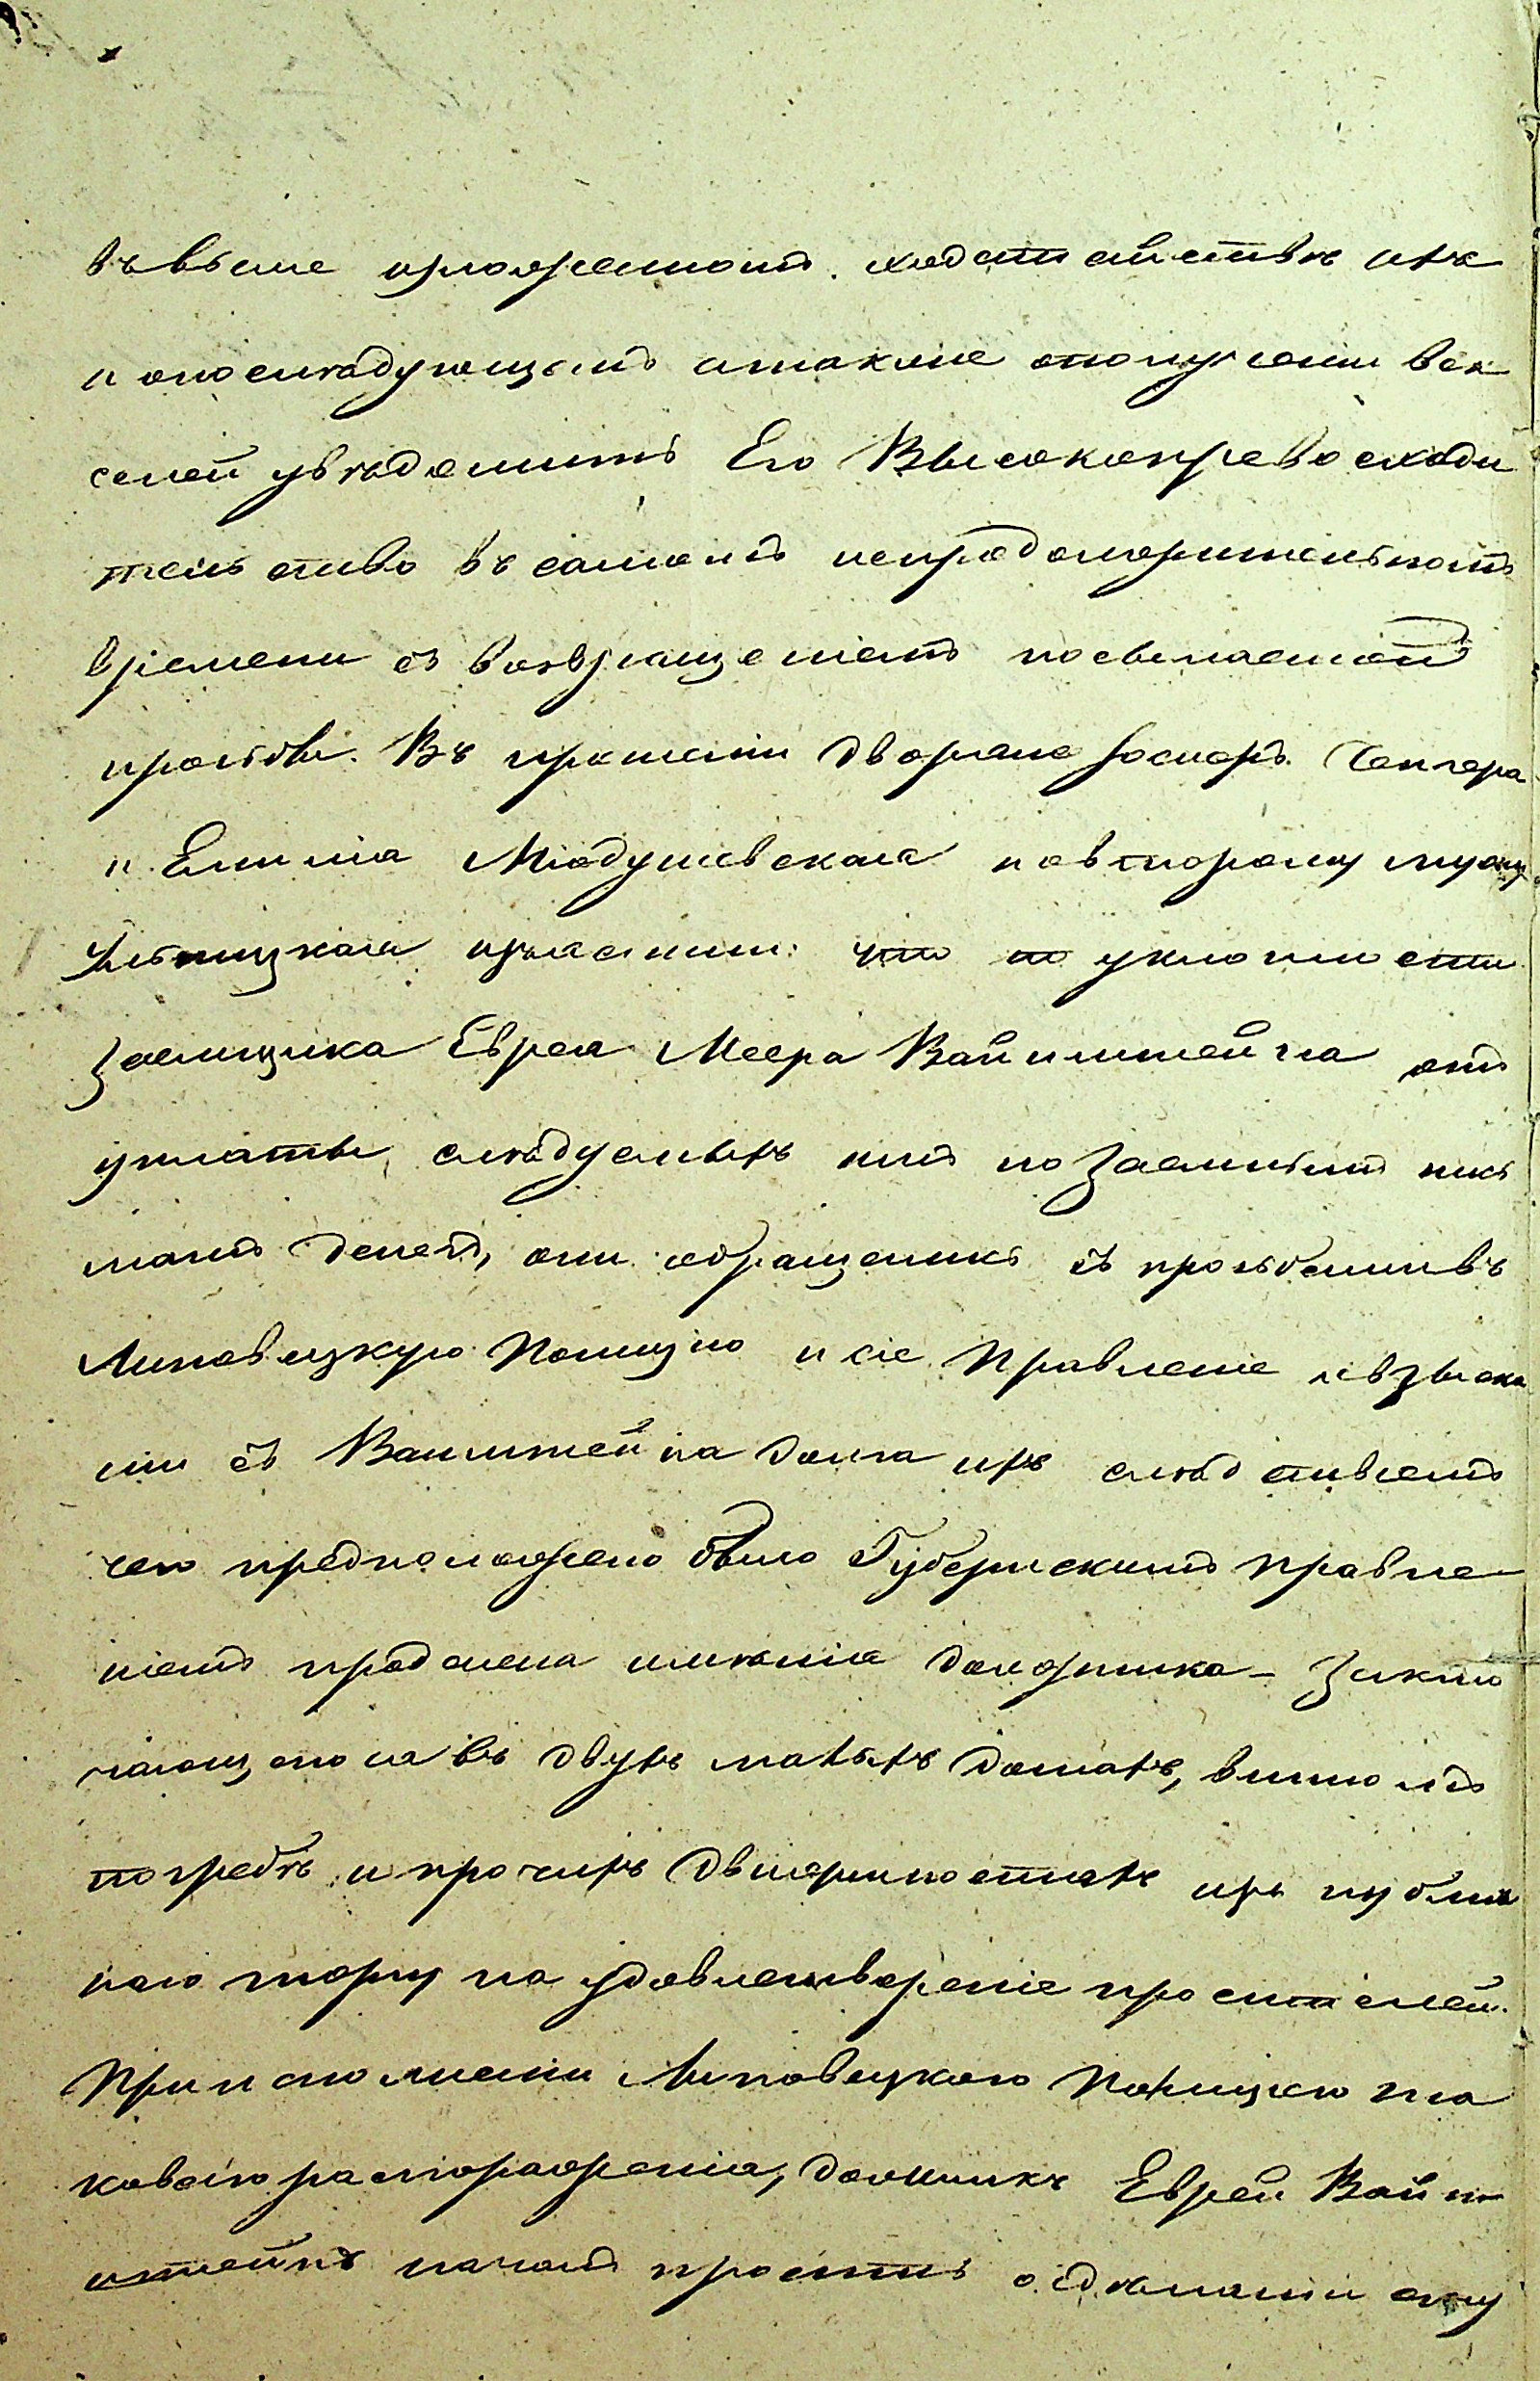 въ выше изложенномъ ходатайствѣ ихъ
и опослѣдующемъ атакже о получении век
селей увѣдомить Его Высокопревосходи
тельство въ самомъ непродолжительномъ
времени съ возвращеніемъ посылаемой
прозьбы. Въ прошеніи дворяне Госифъ
и Емилія Міодушевская повторому мужу
изъяснили: что по уклонности
заемщика Еврея Меера Вайнштейна отъ
уплаты слѣдуемыхъ имъ по заемнымъ пись
мамъ денегъ, они обращались съ прозьбами въ
Липовецкую Полицію и сіе Правленіе о взыска
ніи съ Ваинштейна долга ихъ слѣдствіемъ
чего предположено было Губернскимъ Правле
ніемъ продажа имѣнія должника - заклю
чающагося въ двухъ малыхъ домахъ, винномъ
погребѣ и прочихъ движимостяхъ изъ публич
наго торгу на удовлетвореніе просителей.
При исполненіи Липовецкою Полициею та
коваго распоряженія, должникъ Еврей Вайн
штейнъ началъ просить о сдѣланіи ему